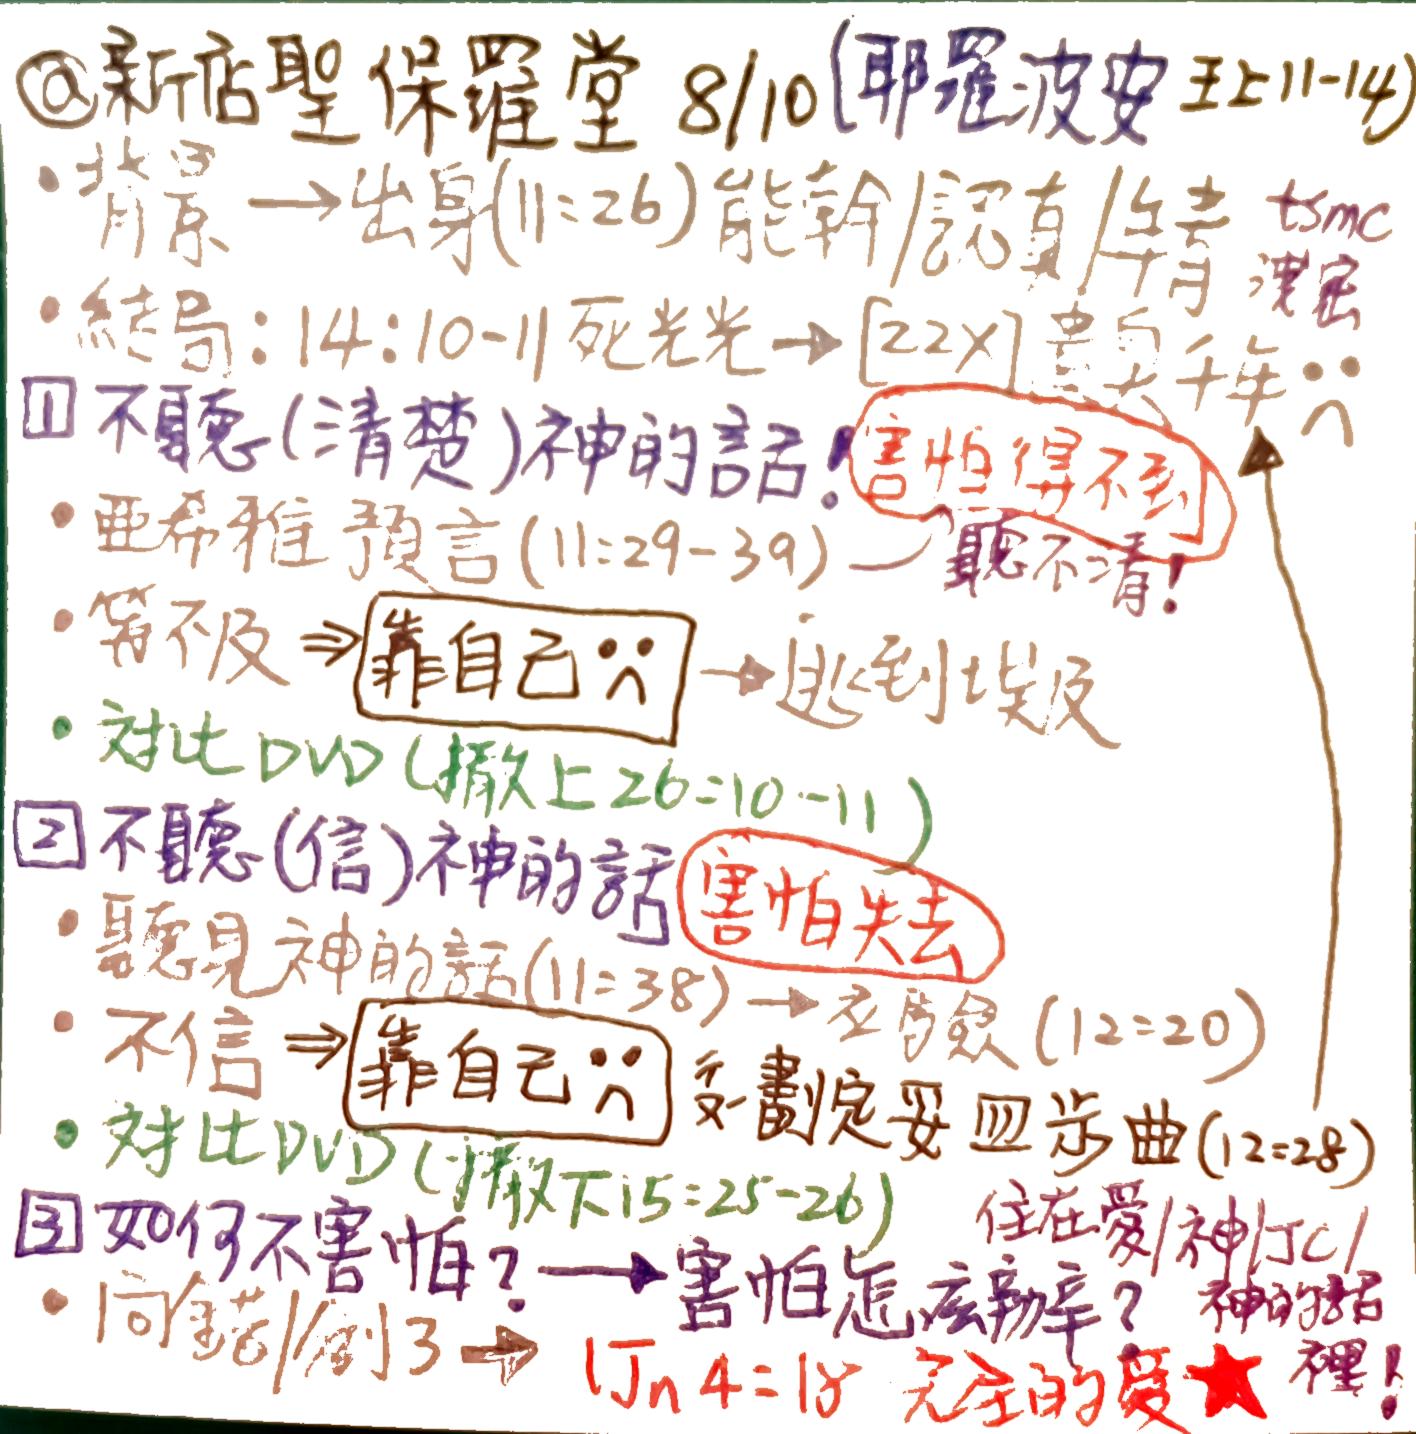 @新店聖保羅堂 8/10 (耶羅波安 王上11-14)
・背景 → 出身(11:26) 能幹/認真/年青
tsmc
洩密
・結局:14:10-11 死光光 → [22X] 遺臭千年
1 不聽(清楚)神的話! 害怕得不到
・亞希雅預言(11:29-39) 聽不清!
・等不及 ⇒ 靠自己 → 逃到埃及
・対比DVD (撒上26:10-11)
2 不聽(信)神的話 害怕失去
・聽見神的話(11:38) → 应驗 (12:20)
・不信 ⇒ 靠自己 劃定妥 四步曲(12:28)
・対比DVD (撒下15:25-26)
3 如何不害怕? → 害怕怎么辦?
住在愛/神/JC/
神的話
裡!
・問錯/創3 → 1Jn 4:18 完全的愛★